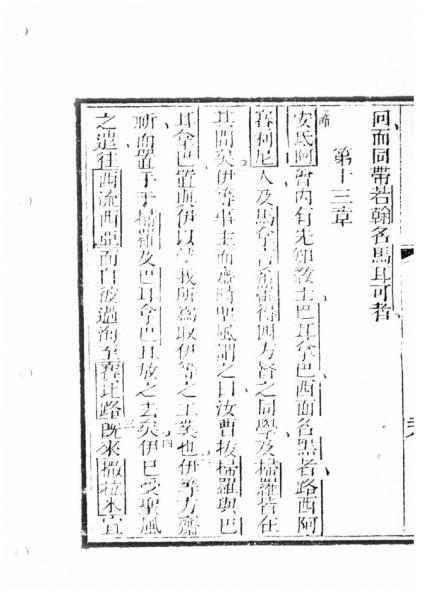 回而同帶若翰名馬耳可者
第十三章
節
安氐阿會內有先知教士巴耳拿巴西面名黑者路西阿
賽利尼人及馬拿羅得四方督之同學及掃羅皆在
其間矣伊等事主而齋時聖風謂之曰汝曹拔掃羅與巴
耳拿巴置與伊以我所為取伊等之工業也伊等方齋
祈而置手于掃羅及巴耳拿巴且放之去矣伊巴受聖風
之遣往西流西亞而自彼過海至路既來撒拉米宣